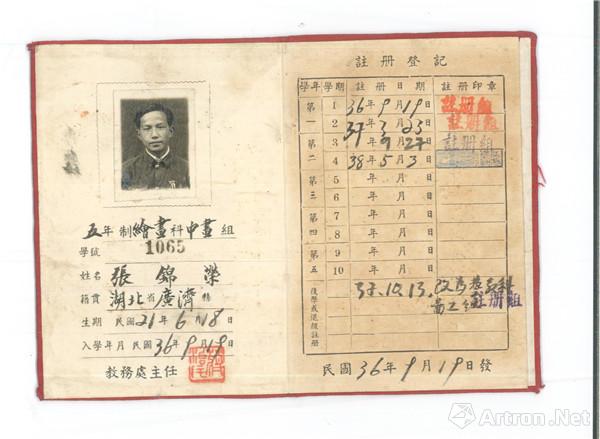 五年制繪畫科中畫組
學號 1065
姓名 張錦榮
籍貫 湖北省廣濟縣
生期 民國21年6月18日
入學年月 民國36年9月19日
教務處主任
註冊登記
學年 學期 註冊日期 註冊印章
第一 1 36年9月19日 註冊組
2 37 3 23 註冊組
第二 3 9 27 註冊組
4 38 5 3
第三 5 年月日
6 年月日
第四 7 年月日
8 年月日
第五 9 年月日
10 年月日
復學或退級註冊 37.10.13. 改為 科 註冊組
民國36年9月19日發
雅昌藝術網
Artron.Net